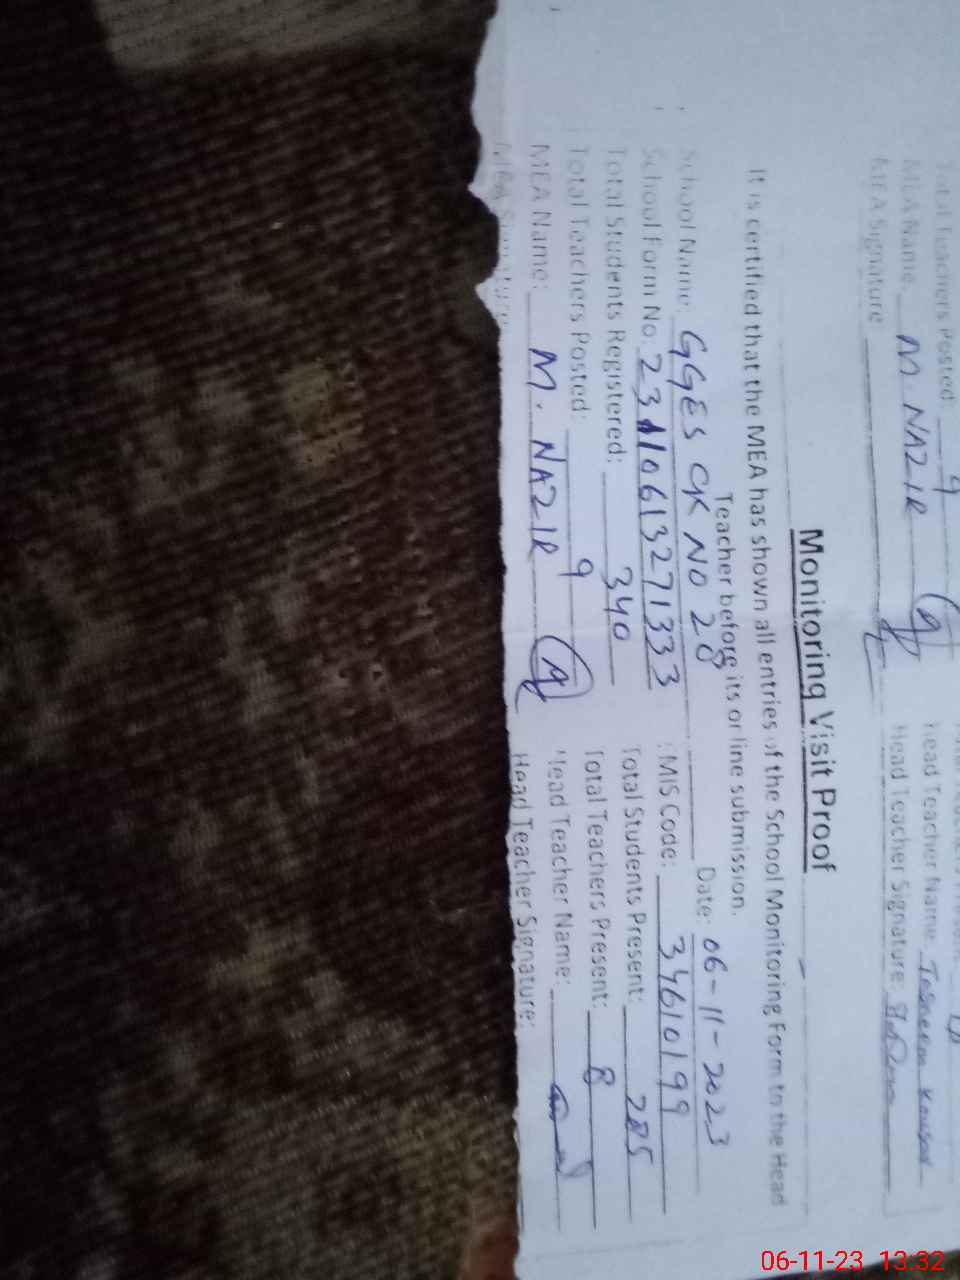 Total Teachers Posted: 9
MEA Name: M. NAZIR Head Teacher Name: Tasneem Kousar
MEA Signature Head Teacher Signature:
Monitoring Visit Proof
It is certified that the MEA has shown all entries of the School Monitoring Form to the Head
Teacher before its online submission.
School Name: GGES CK NO 28 Date: 06-11-2023
School Form No. 23110613271333 EMIS Code: 34610199
Total Students Registered: 340 Total Students Present: 285
Total Teachers Posted: 9 Total Teachers Present: 8
MEA Name: M. NAZIR Head Teacher Name:
MEA Signature Head Teacher Signature:
06-11-23 13:32